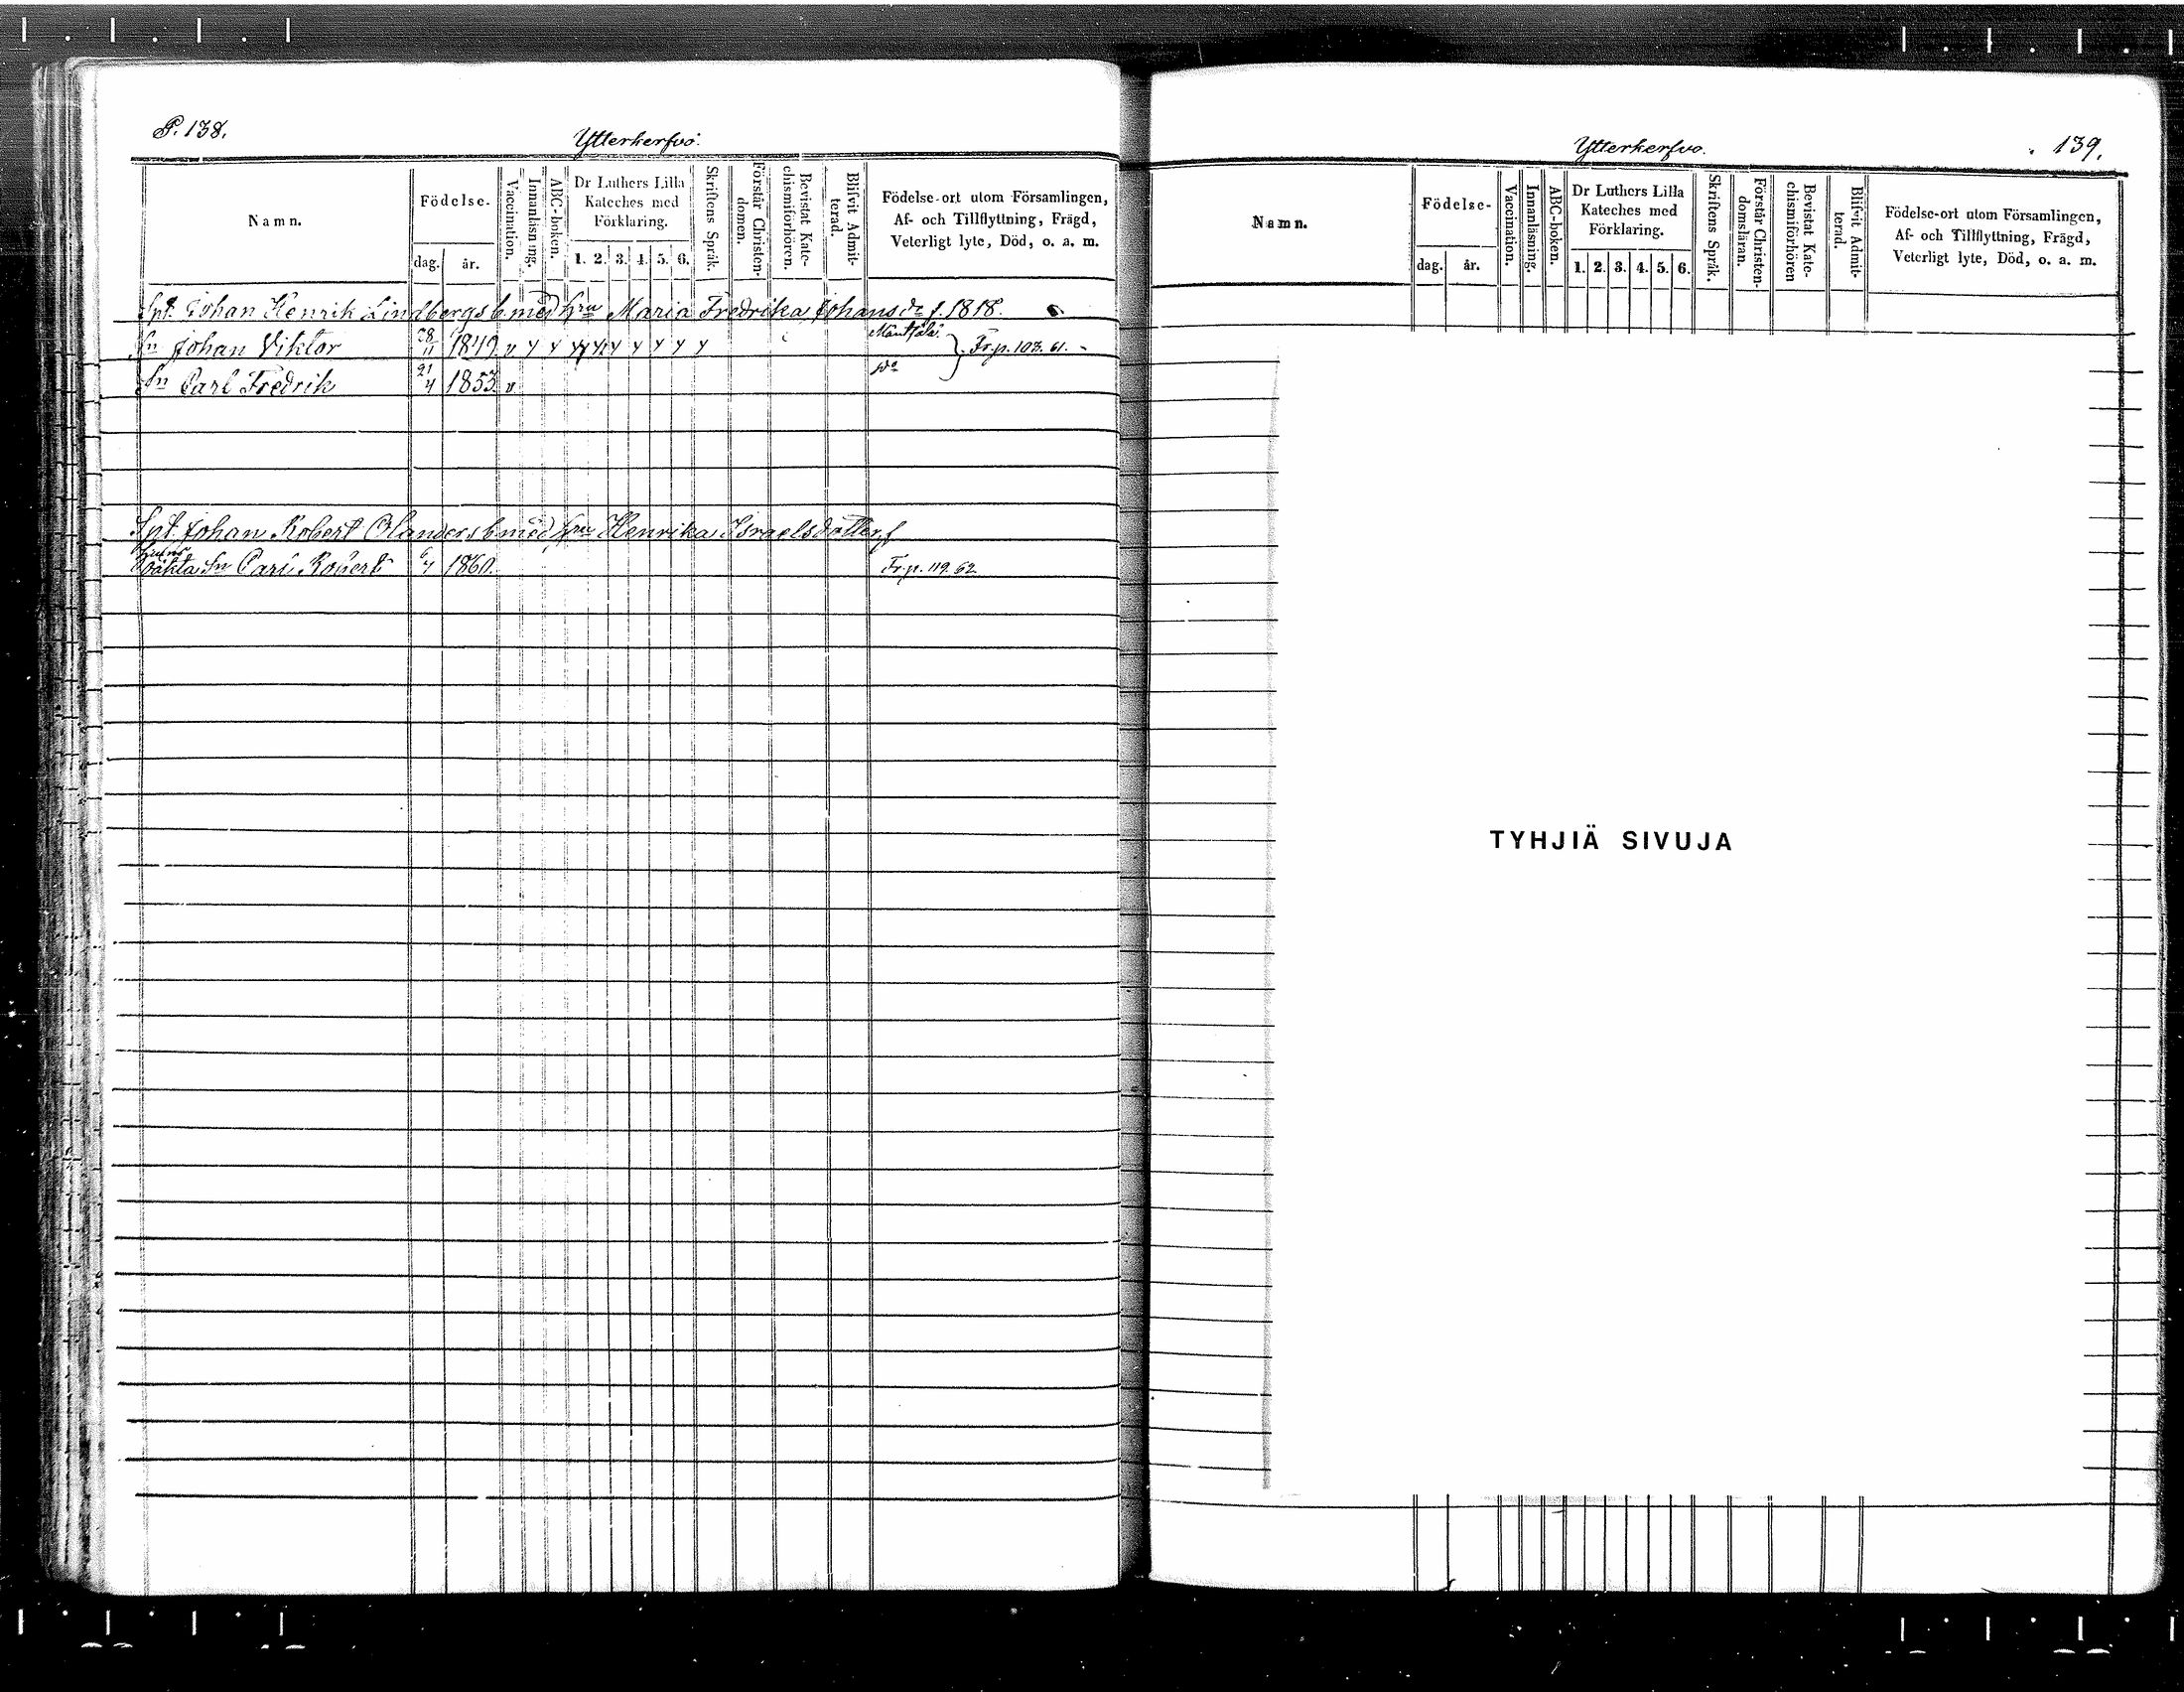 P. 138.
Ytterkerfvo.
Namn.
Födelse.
dag. år.
Vaccination.
Innanläsning.
ABC-boken.
Dr Luthers Lilla
Kateches med
Förklaring.
1. 2. 3. 4. 5. 6.
Skriftens Språk.
Förstår Christen-
domen.
Bevistat Kate-
chismiförhören.
Blifvit Admit-
terad.
Födelse-ort utom Församlingen,
Af- och Tillflyttning, Frägd,
Veterligt lyte, Död, o. a. m.
Spt. Johan Henrik Lindbergs b. med hru Maria Fredrika Johansdr f. 1818.
Sn Johan Viktor 28/11 1849. v y y y y y y y y y Fr. p. 103. 61.
Sn Carl Fredrik 21/4 1853. v do
Spt. Johan Robert Olanders b. med hru Henrika Israelsdotter f
oäkta Sn Carl Robert 6/4 1860. Fr. p. 119. 62.
Ytterkerfvo.
139.
Namn.
Födelse-
dag. år.
Vaccination.
Innanläsning.
ABC-boken.
Dr Luthers Lilla
Kateches med
Förklaring.
1. 2. 3. 4. 5. 6.
Skriftens Språk.
Förstår Christen-
domsläran.
Bevistat Kate-
chismiförhören
Blifvit Admit-
terad.
Födelse-ort utom Församlingen,
Af- och Tillflyttning, Frägd,
Veterligt lyte, Död, o. a. m.
TYHJIÄ SIVUJA